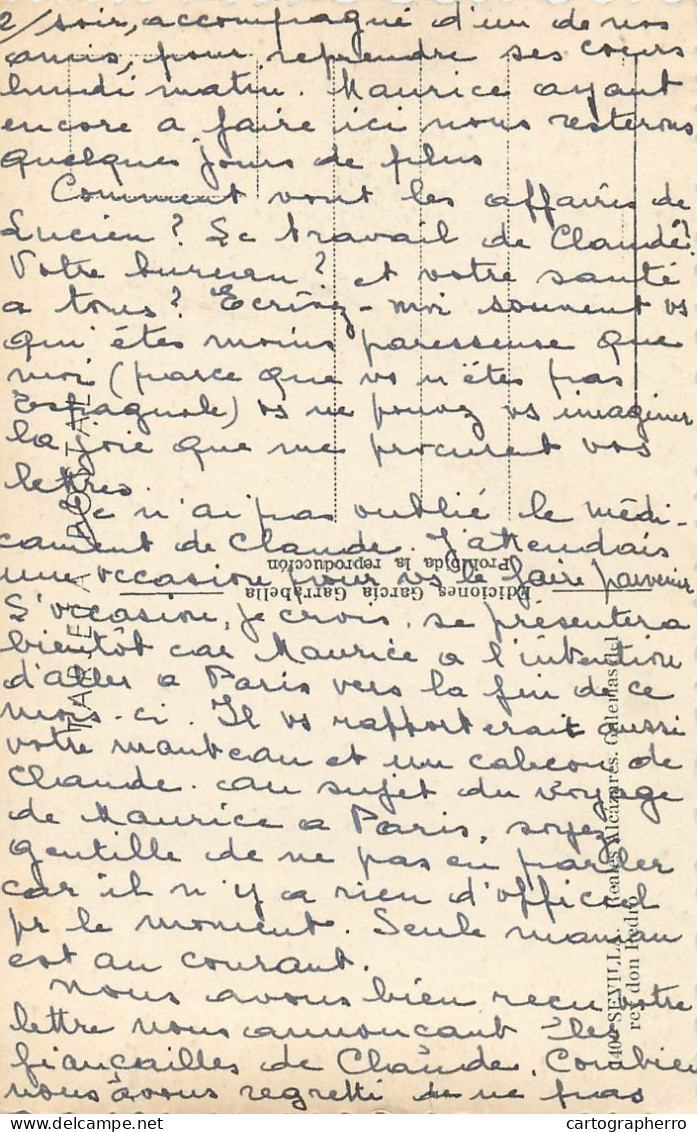 2/ soir, accompagné d'un de nos
amis, pour reprendre ses cours
lundi matin. Maurice ayant
encore a faire ici nous resterons
quelques jours de plus
Comment vont les affaires de
Lucien? Le travail de Claude?
Votre bureau? et votre santé
a tous? Ecrivez-moi souvent vs
qui êtes moins paresseuse que
moi (parce que vs n'êtes pas
Espagnole) vs ne pouvez vs imaginer
la joie que me procurent vos
lettres.
Je n'ai pas oublié le médi-
cament de Claude. J'attendais
une occasion pour vs le faire parvenir
L'occasion, je crois, se présentera
bientôt car Maurice a l'intention
d'aller a Paris vers la fin de ce
mois-ci. Il vs rapporterait aussi
votre manteau et un caleçon de
Claude. au sujet du voyage
de Maurice a Paris, soyez
gentille de ne pas en parler
car il n'y a rien d'officiel
pr le moment. Seule maman
est au courant.
Nous avons bien reçu votre
lettre nous annonçant les
fiançailles de Claude. Combien
nous avons regretté de ne pas
TARJETA POSTAL
Ediciones García Garrabella
Prohibida la reproducción
40 SEVILLA. Reales Alcázares. Galerías del
rey don Pedro
cartographerro.com